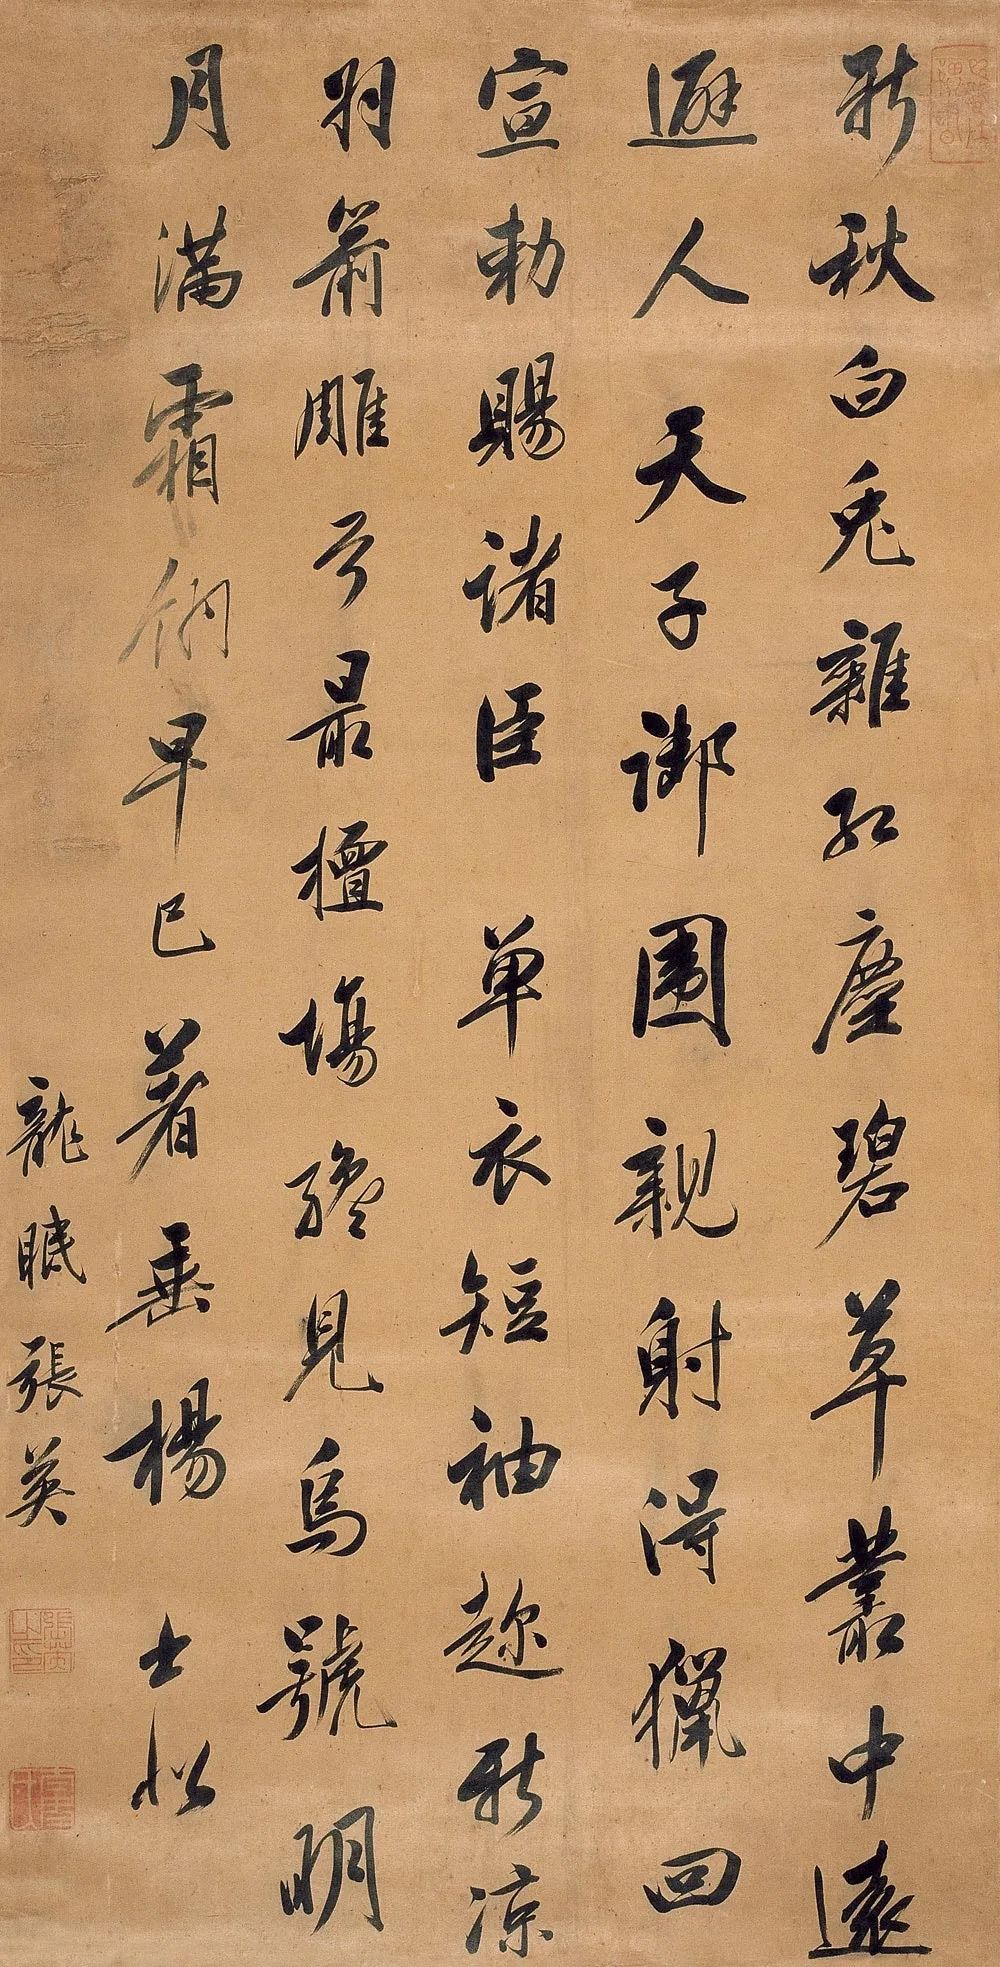 新秋白兔離紅塵碧草叢中遠
避人天子御圍親射得獵回
宣勅賜諸臣單衣短袖趁新涼
羽箭雕弓最擅場纔見烏號明
月滿霜鈚早已著垂楊士松
龍眠張英
張英之印